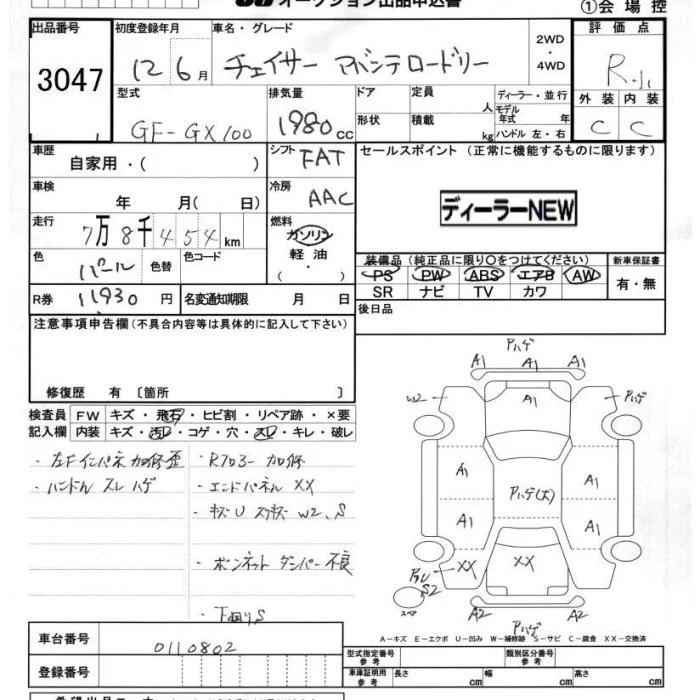 オークション出品申込書
①会場控
出品番号
3047
初度登録年月
12 6月
車名・グレード
チェイサー アバンテロードリー
2WD
・
4WD
評価点
R小
型式
GF-GX100
排気量
1980cc
ドア
形状
定員
人
積載
kg
ディーラー・並行
モデル年式 年
ハンドル 左・右
外装 内装
C C
車歴
自家用・( )
シフト
FAT
セールスポイント (正常に機能するものに限ります)
ディーラーNEW
車検
年 月( 日)
冷房
AAC
走行
7万8千454km
燃料
ガソリン
軽油
・( )
色
パール
色替
色コード
装備品(純正品に限り〇をつけてください)
PS PW ABS エアB AW
SR ナビ TV カワ
新車保証書
有・無
R券 11930円
名変通知期限 月 日
後日品
注意事項申告欄(不具合内容等は具体的に記入して下さい)
修復歴 有 〔箇所 〕
検査員
記入欄
FW キズ・飛石・ヒビ割・リペア跡・×要
内装 キズ・汚レ・コゲ・穴・スレ・キレ・破レ
・左Fインパネ加修歪
・ハンドルスレハゲ
・Rフロアー加修
・エンドパネルXX
・キズU スリキズ W2、S
・ボンネットダンパー不良
・下回りS
Pハゲ
A1 A1 A1
W2 A1 Pハゲ
A1 A1
Pハゲ(大)
A1 A1
XX XX
PんU S2
スペア
A2 A2
Pハゲ
A-キズ E-エクボ U-凹み W-補修跡 S-サビ C-腐食 XX-交換済
車台番号
0110802
登録番号
型式指定番号
参考
類別区分番号
参考
車庫証明用
参考
長さ cm
幅 cm
高さ cm